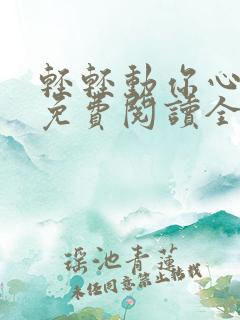 輕輕動你心
免費閱讀全
瑤池青蓮
未經同意禁止轉載